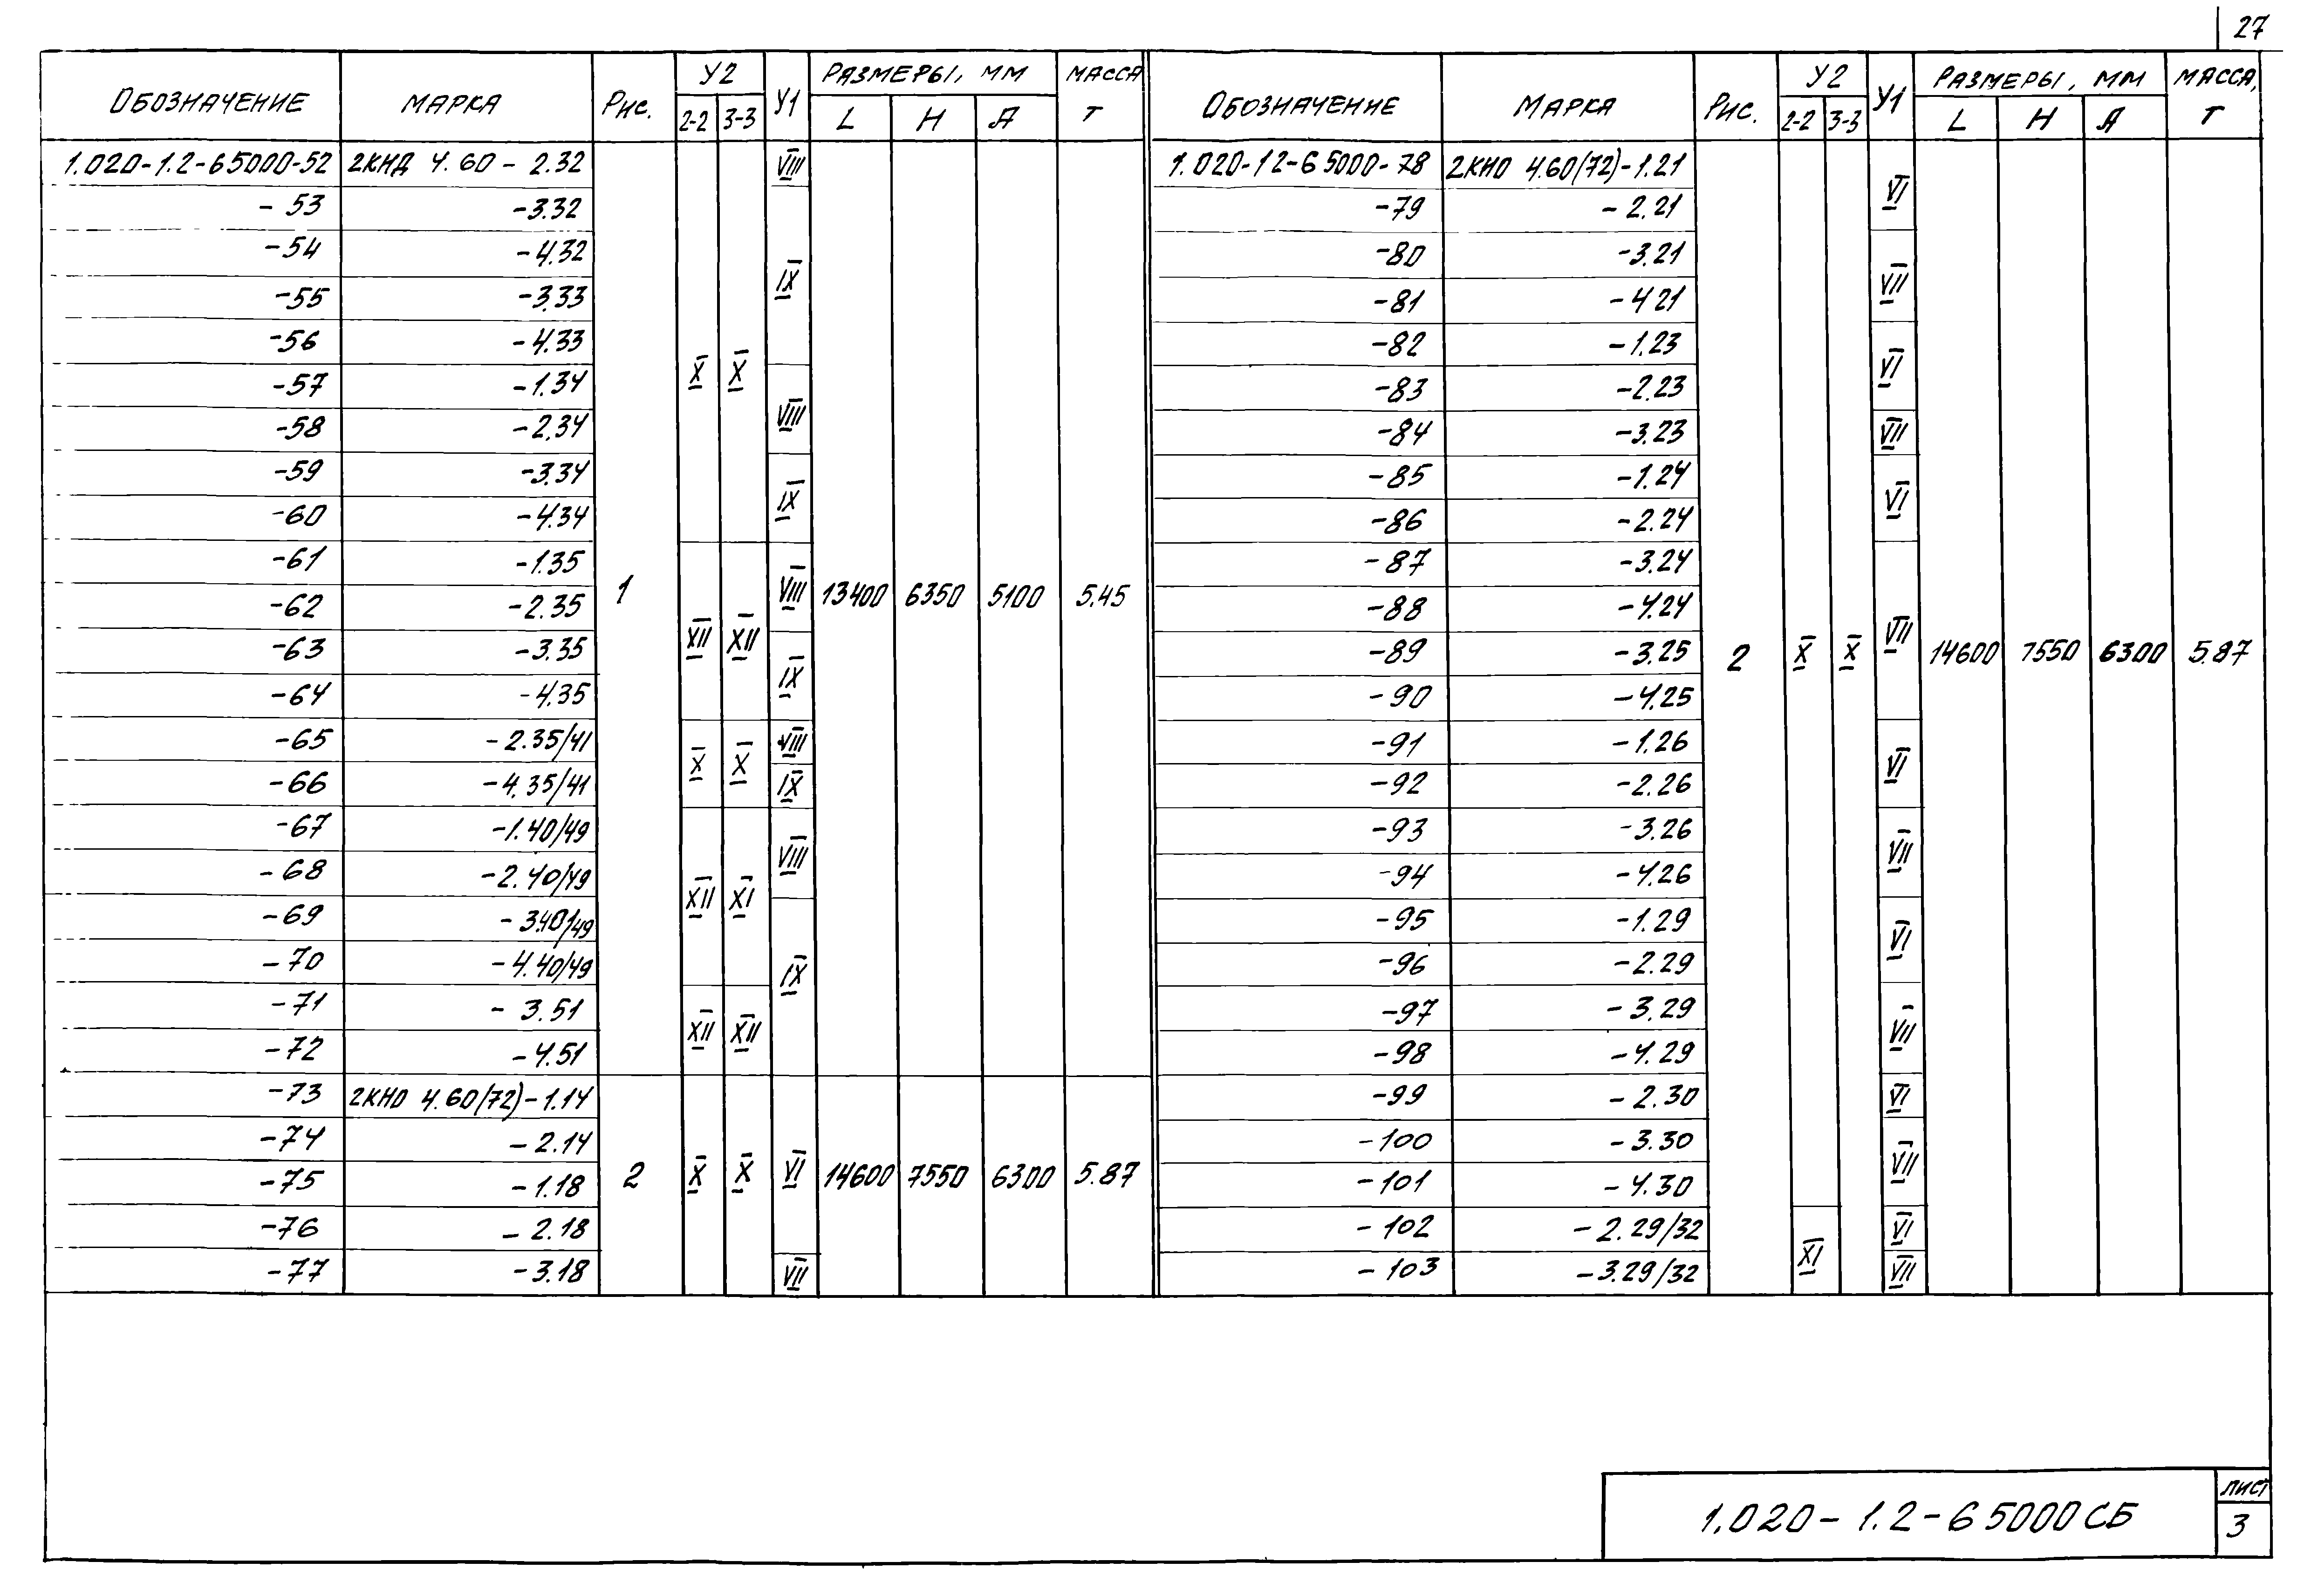 27
ОБОЗНАЧЕНИЕ МАРКА РИС. У2 У1 РАЗМЕРЫ, ММ МАССА
2-2 3-3 L H A Т
1.020-1.2-6 5000-52 2КНД 4.60 - 2.32 VIII
-53 -3.32
-54 -4.32
-55 -3.33 IX
-56 -4.33
-57 -1.34 X X
-58 -2.34 VIII
-59 -3.34
-60 -4.34 IX
-61 -1.35
-62 -2.35 1 VIII 13400 6350 5100 5.45
-63 -3.35 XII XII
-64 -4.35 IX
-65 -2.35/41 X X VIII
-66 -4.35/41 IX
-67 -1.40/49
-68 -2.40/49 VIII
-69 -3.40/49 XII XI
-70 -4.40/49 IX
-71 -3.51
-72 -4.51 XII XII
-73 2КНО 4.60(72)-1.14
-74 -2.14
-75 -1.18 2 X X VI 14600 7550 6300 5.87
-76 -2.18
-77 -3.18 VII
ОБОЗНАЧЕНИЕ МАРКА РИС. У2 У1 РАЗМЕРЫ, ММ МАССА,
2-2 3-3 L H A Т
1.020-1.2-6 5000-78 2КНО 4.60(72)-1.21
-79 -2.21 VI
-80 -3.21
-81 -4.21 VII
-82 -1.23
-83 -2.23 VI
-84 -3.23 VII
-85 -1.24
-86 -2.24 VI
-87 -3.24
-88 -4.24
-89 -3.25 2 X X VII 14600 7550 6300 5.87
-90 -4.25
-91 -1.26
-92 -2.26 VI
-93 -3.26
-94 -4.26 VII
-95 -1.29
-96 -2.29 VI
-97 -3.29
-98 -4.29 VII
-99 -2.30 VI
-100 -3.30
-101 -4.30 VII
-102 -2.29/32 VI
-103 -3.29/32 XI VII
1.020-1.2-6 5000СБ
ЛИСТ
3